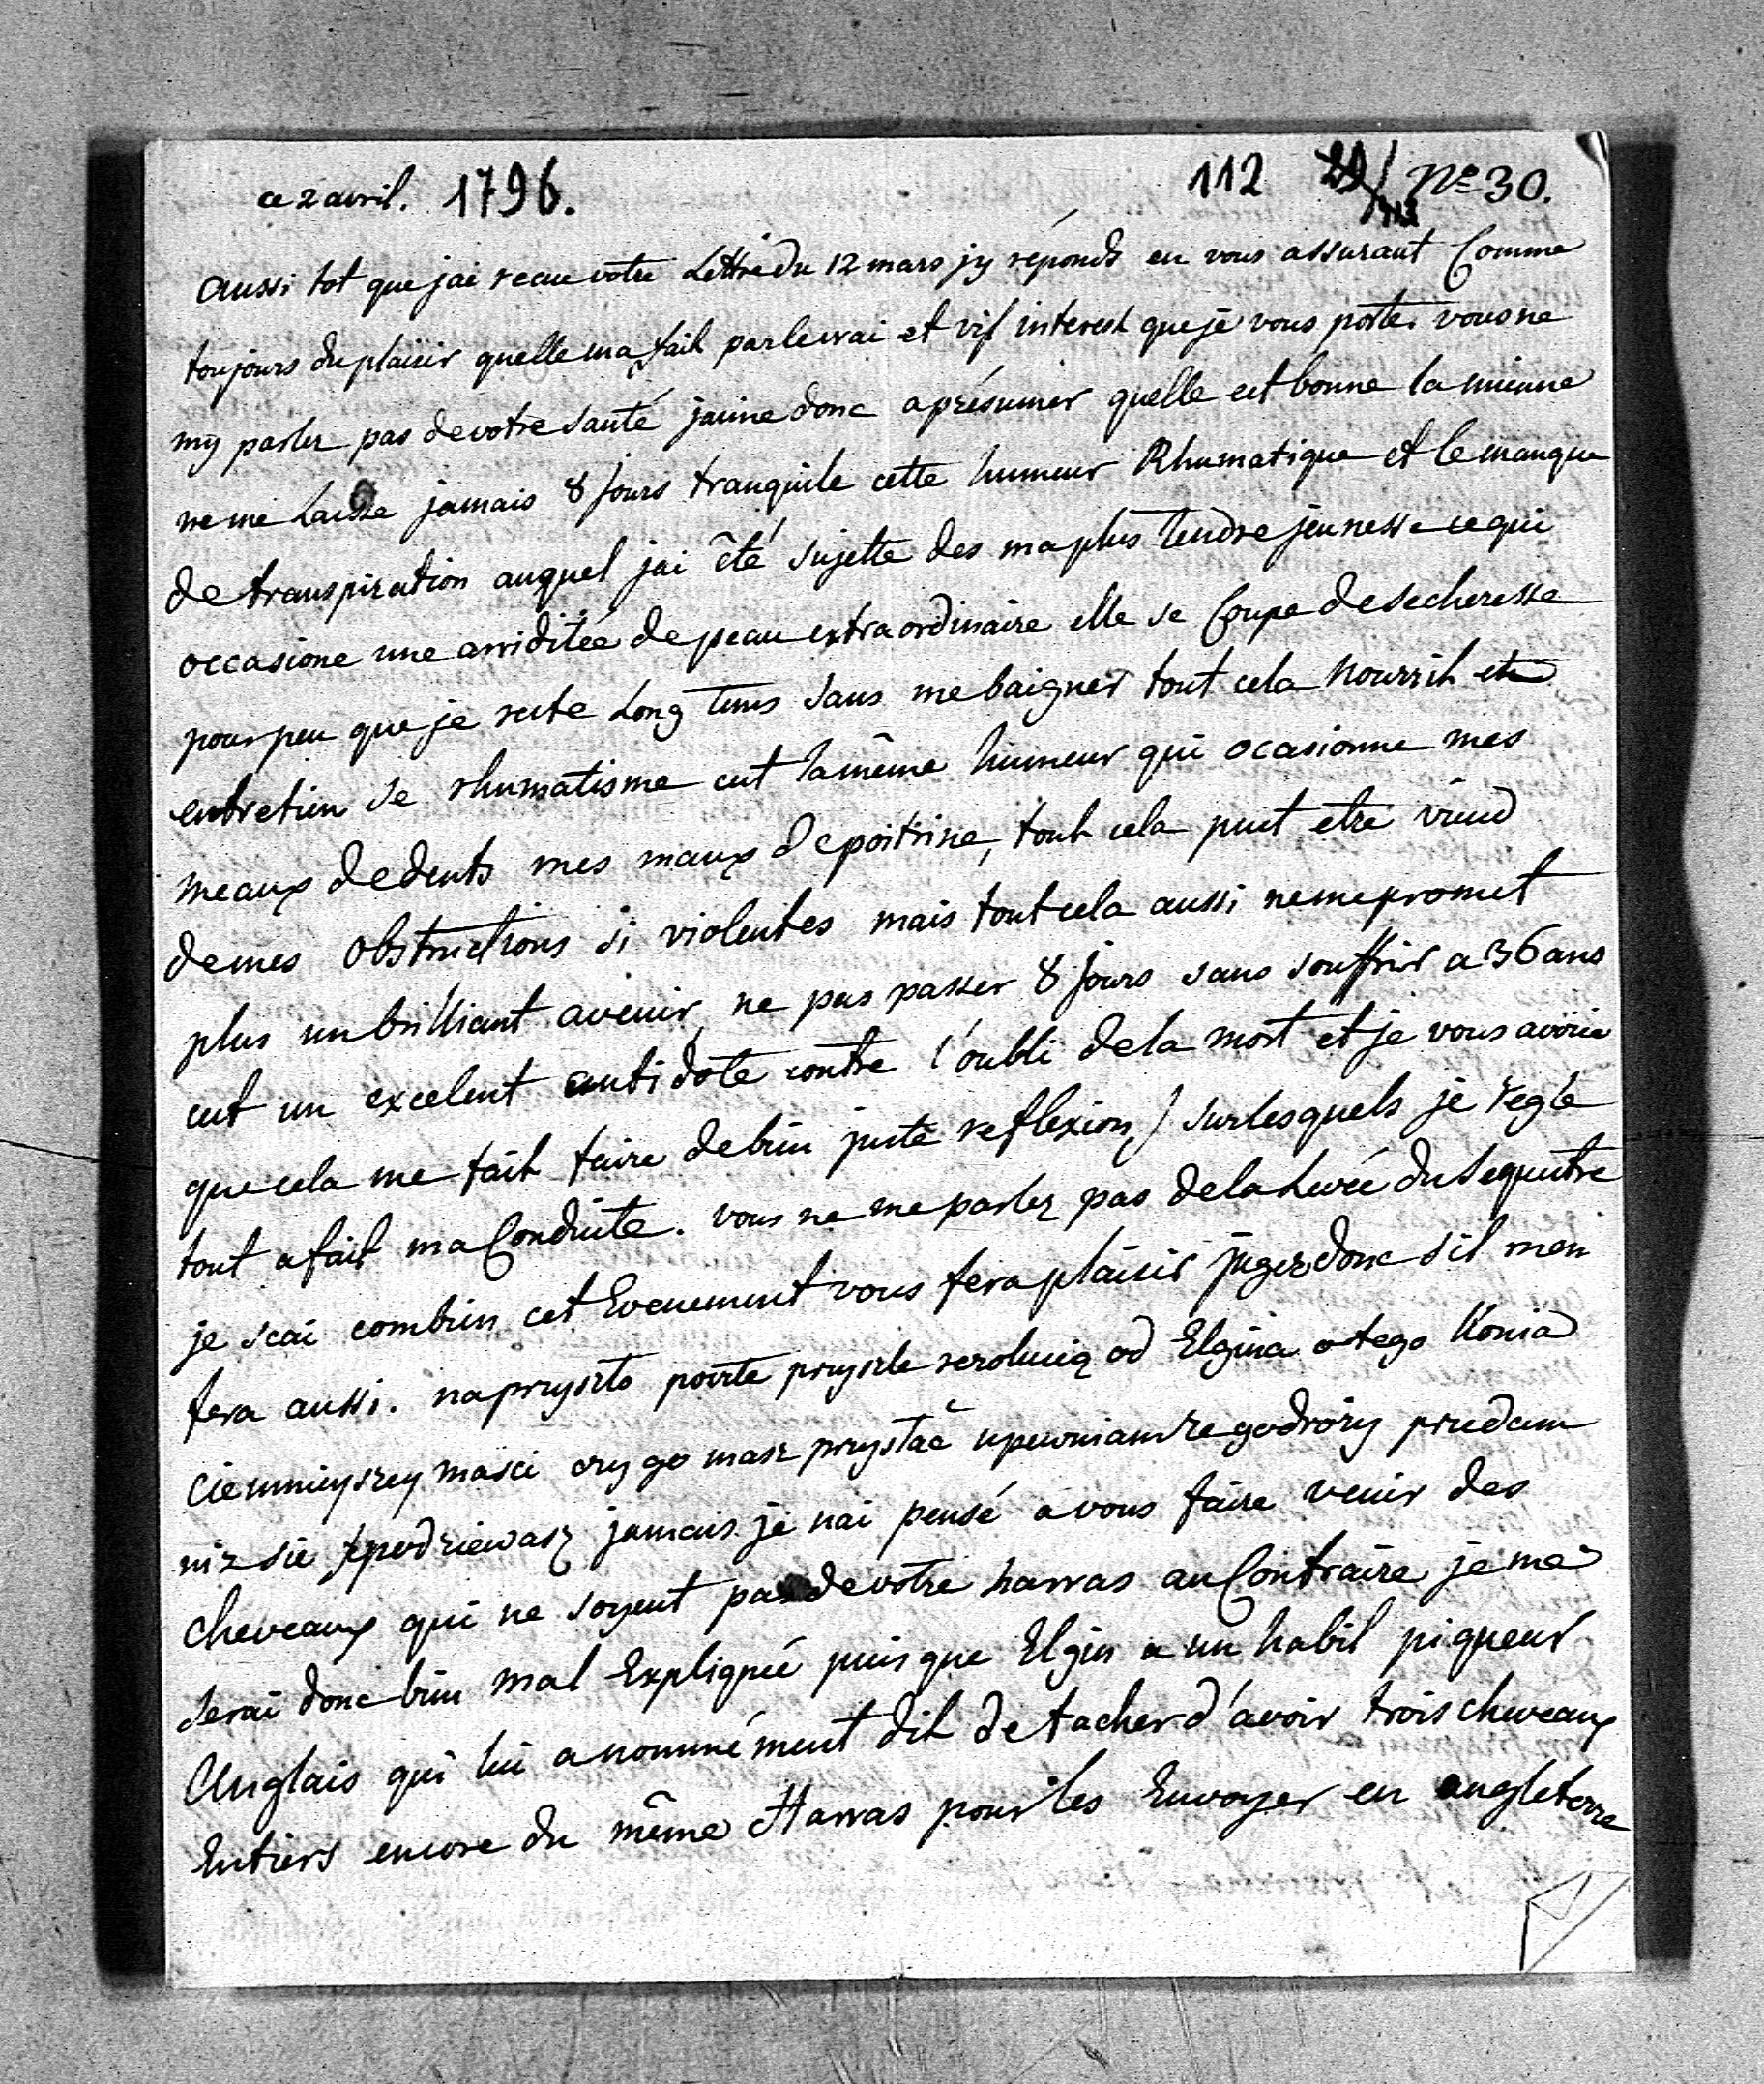 ce 2 avril. 1796. 112 29/ 112 No 30.
aussi tot que jai recue votre Lettre du 12 mars jy réponds en vous assurant Comme
toujours du plaisir quelle ma fait par le vrai et vif interest que je vous porte. vous ne
my parlez pas de votre santé jaime donc a présumer quelle est bonne la mienne
ne me Laisse jamais 8 jours tranquile cette humeur Rhumatique et le manque
de transpiration auquel jai êté sujette des ma plus tendre jeunesse ce qui
occasione une arriditée de peau extraordinaire elle se Coupe de secheresse
pour peu que je reste Long tems sans me baigner tout cela nourrit et
entretien se rhumatisme cest la même humeur qui ocasionne mes
meaux de dents mes maux de poitrine, tout cela peut etre viend
de mes obstructions si violentes mais tout cela aussi ne me promet
plus un brilliant avenir, ne pas passer 8 jours sans souffrir a 36 ans
est un excelent antidote contre l'oubli de la mort et je vous avoüe
que cela me fait faire de bien juste reflexion / sur lesquels je regle
tout a fait ma Conduite. vous ne me parlez pas de la Levée du sequestre
je scai combien cet Evenement vous fera plaisir jugez donc s'il men
fera aussi. naprzyszto poczte przyszle rezolucią od Elgina o tego konia
ciemnieyszey masci czy go masz przystać upewniam ze go drożey przedam
niz sie spodziewasz jamais je nai pensé a vous faire venir des
cheveaux qui ne soyent pas de votre harras au Contraire je me
serai donc bien mal Expliquée puisque Elgin a un habil piqueur
Anglais qui lui a nommément dit de tacher d'avoir trois cheveaux
Entiers encore du même Harras pour les Envoyer en angleterre